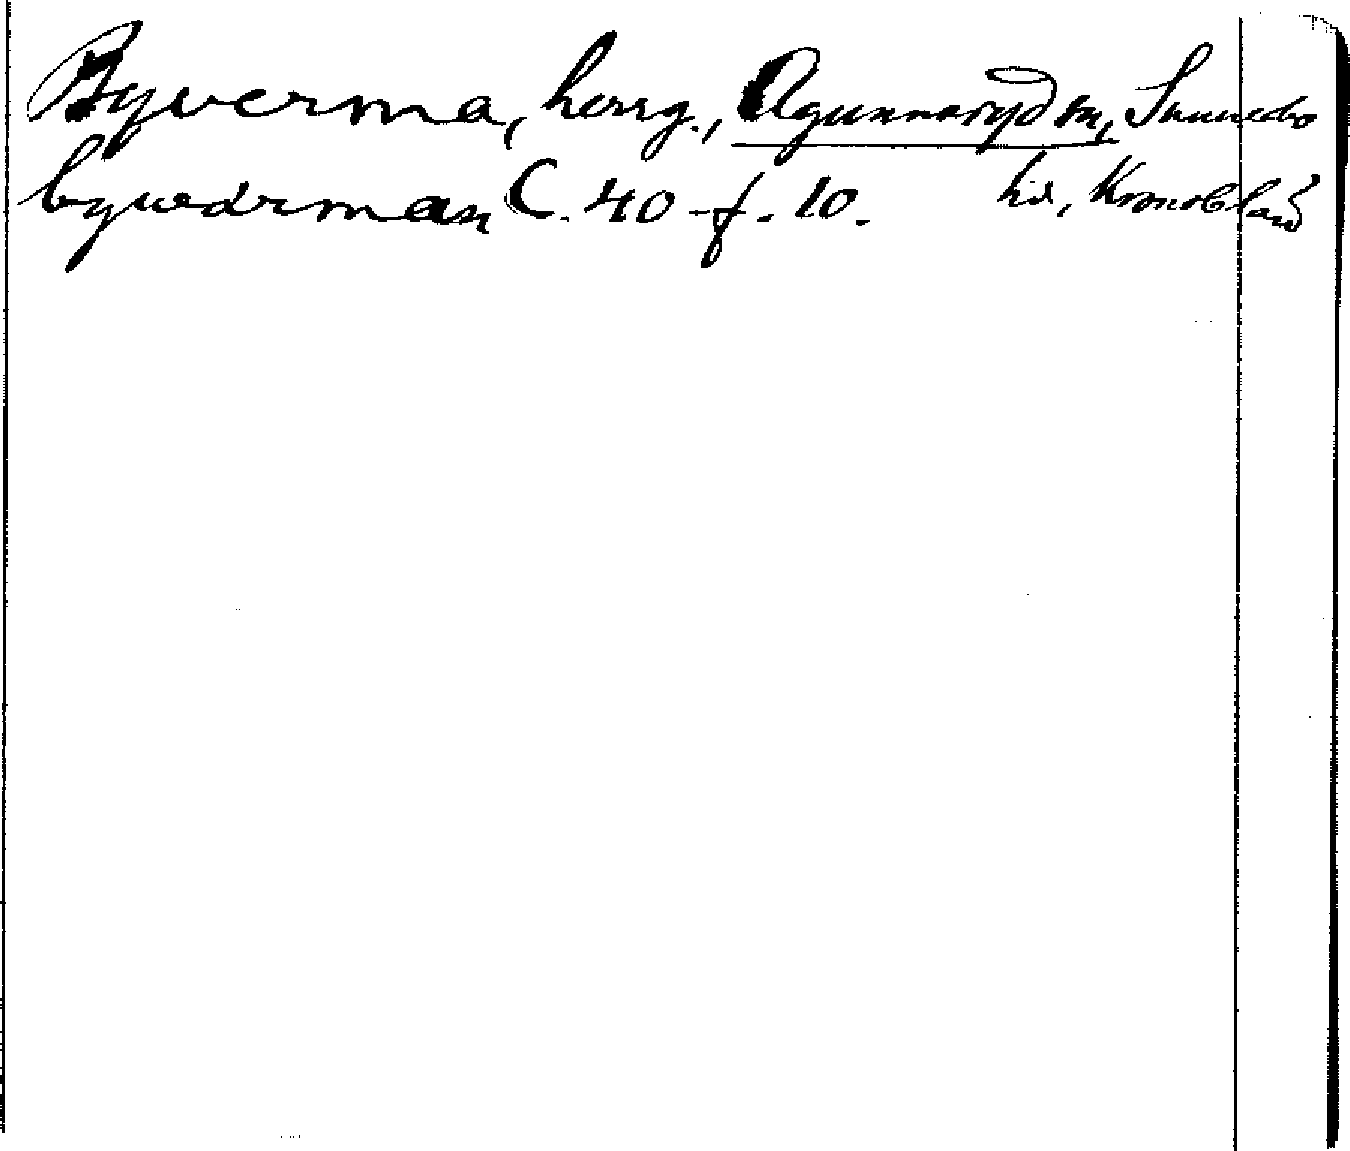 Byverma, herrg., Agunnaryd sn, Sunnerbo
hd, Kronobl län
bywærman C. 40 f. 10.